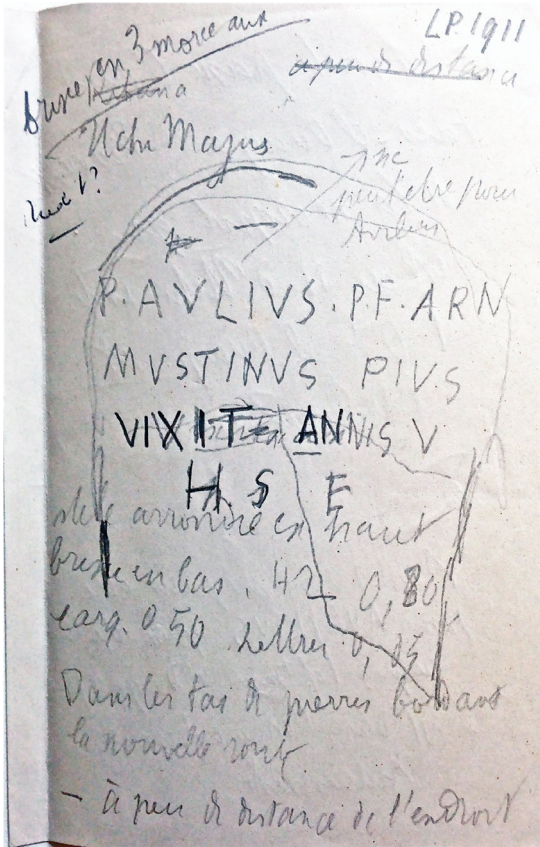 LP. 1911
brisé en 3 morceaux
à peu de distance
Uchi Majus
sic
peut être pour
P. AVLIVS. P.F. ARN
MVSTINVS PIVS
VIXIT ANNIS V
H S E
stèle arrondie en haut
brisée en bas. H 0,80
larg. 0 50 Lettres 0,05
Dans les tas de pierres bordant
la nouvelle route
– à peu de distance de l'endroit